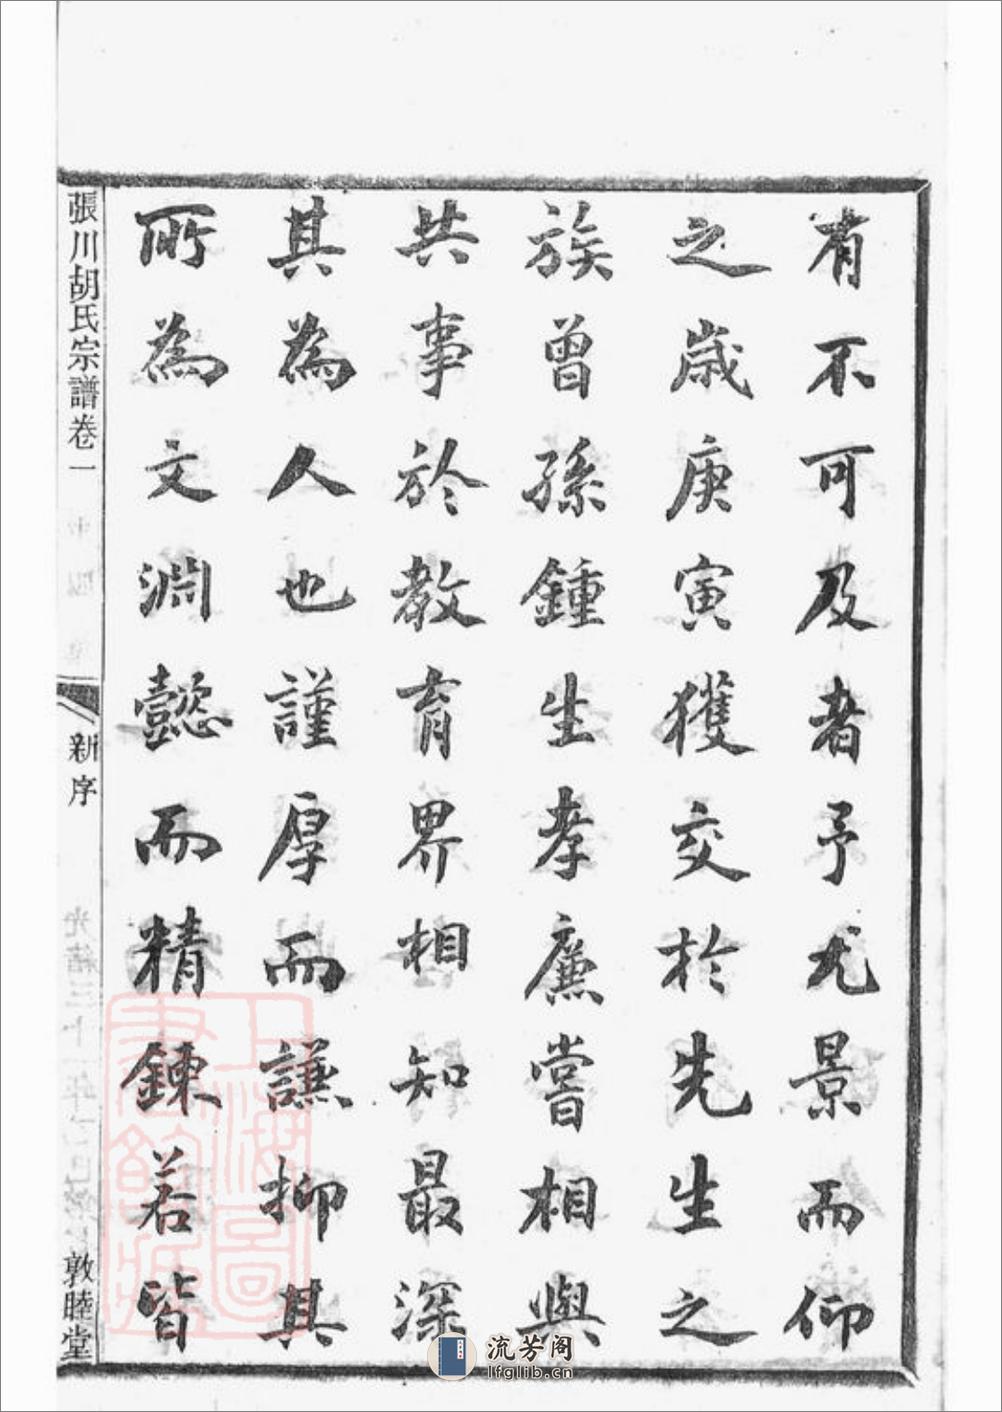 有不可及者予尤景而仰
之歲庚寅獲交於先生之
族曾孫鍾生孝廉嘗相與
共事於教育界相知最深
其為人也謹厚而謙抑其
所為文淵懿而精鍊若皆
張川胡氏宗譜卷一
新序
敦睦堂
上海圖書館藏
流芳阁
lfglib.cn